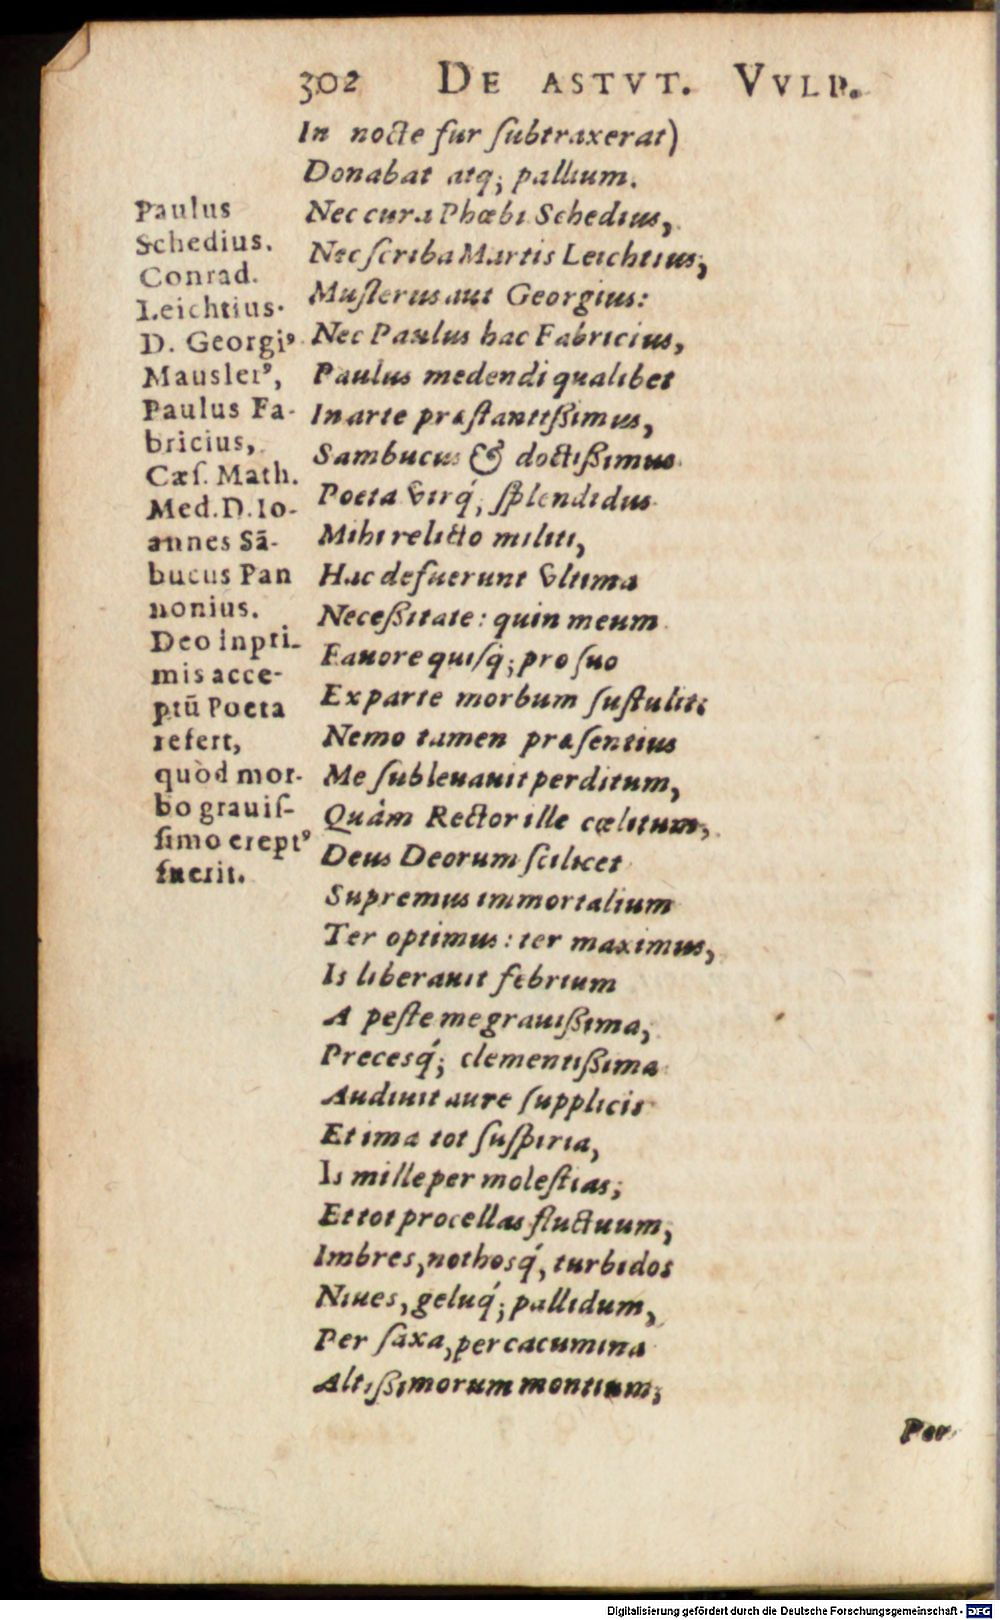 302 DE ASTVT. VVLP.
In nocte fur ſubtraxerat)
Donabat atq; pallium.
Nec cura Phœbi Schedius,
Nec ſcriba Martis Leichtius,
Muſlerus aut Georgius:
Nec Paulus hac Fabricius,
Paulus medendi qualibet
In arte præſtantißimus,
Sambucus & doctißimus
Poeta virq́; ſplendidus
Mihi relicto militi,
Hac defuerunt vltima
Neceßitate: quin meum
Fauore quiſq́; pro ſuo
Ex parte morbum ſuſtulit:
Nemo tamen præſentius
Me ſubleuauit perditum,
Quàm Rector ille cœlitum,
Deus Deorum ſcilicet
Supremus immortalium
Ter optimus: ter maximus,
Is liberauit febrium
A peſte me grauißima,
Precesq́; clementißima
Audiuit aure ſupplicis
Et ima tot ſuſpiria,
Is mille per moleſtias;
Et tot procellas fluctuum,
Imbres, nothosq́, turbidos
Niues, geluq́; pallidum,
Per ſaxa, per cacumina
Altißimorum montium;
Per
Paulus
Schedius.
Conrad.
Leichtius.
D. Georgiꝰ
Mauslerꝰ,
Paulus Fa-
bricius,
Cæſ. Math.
Med. D. Io-
annes Sā-
bucus Pan
nonius.
Deo inpri-
mis acce-
ptū Poeta
refert,
quòd mor-
bo grauiſ-
ſimo ereptꝰ
fuerit.
Digitalisierung gefördert durch die Deutsche Forschungsgemeinschaft - DFG